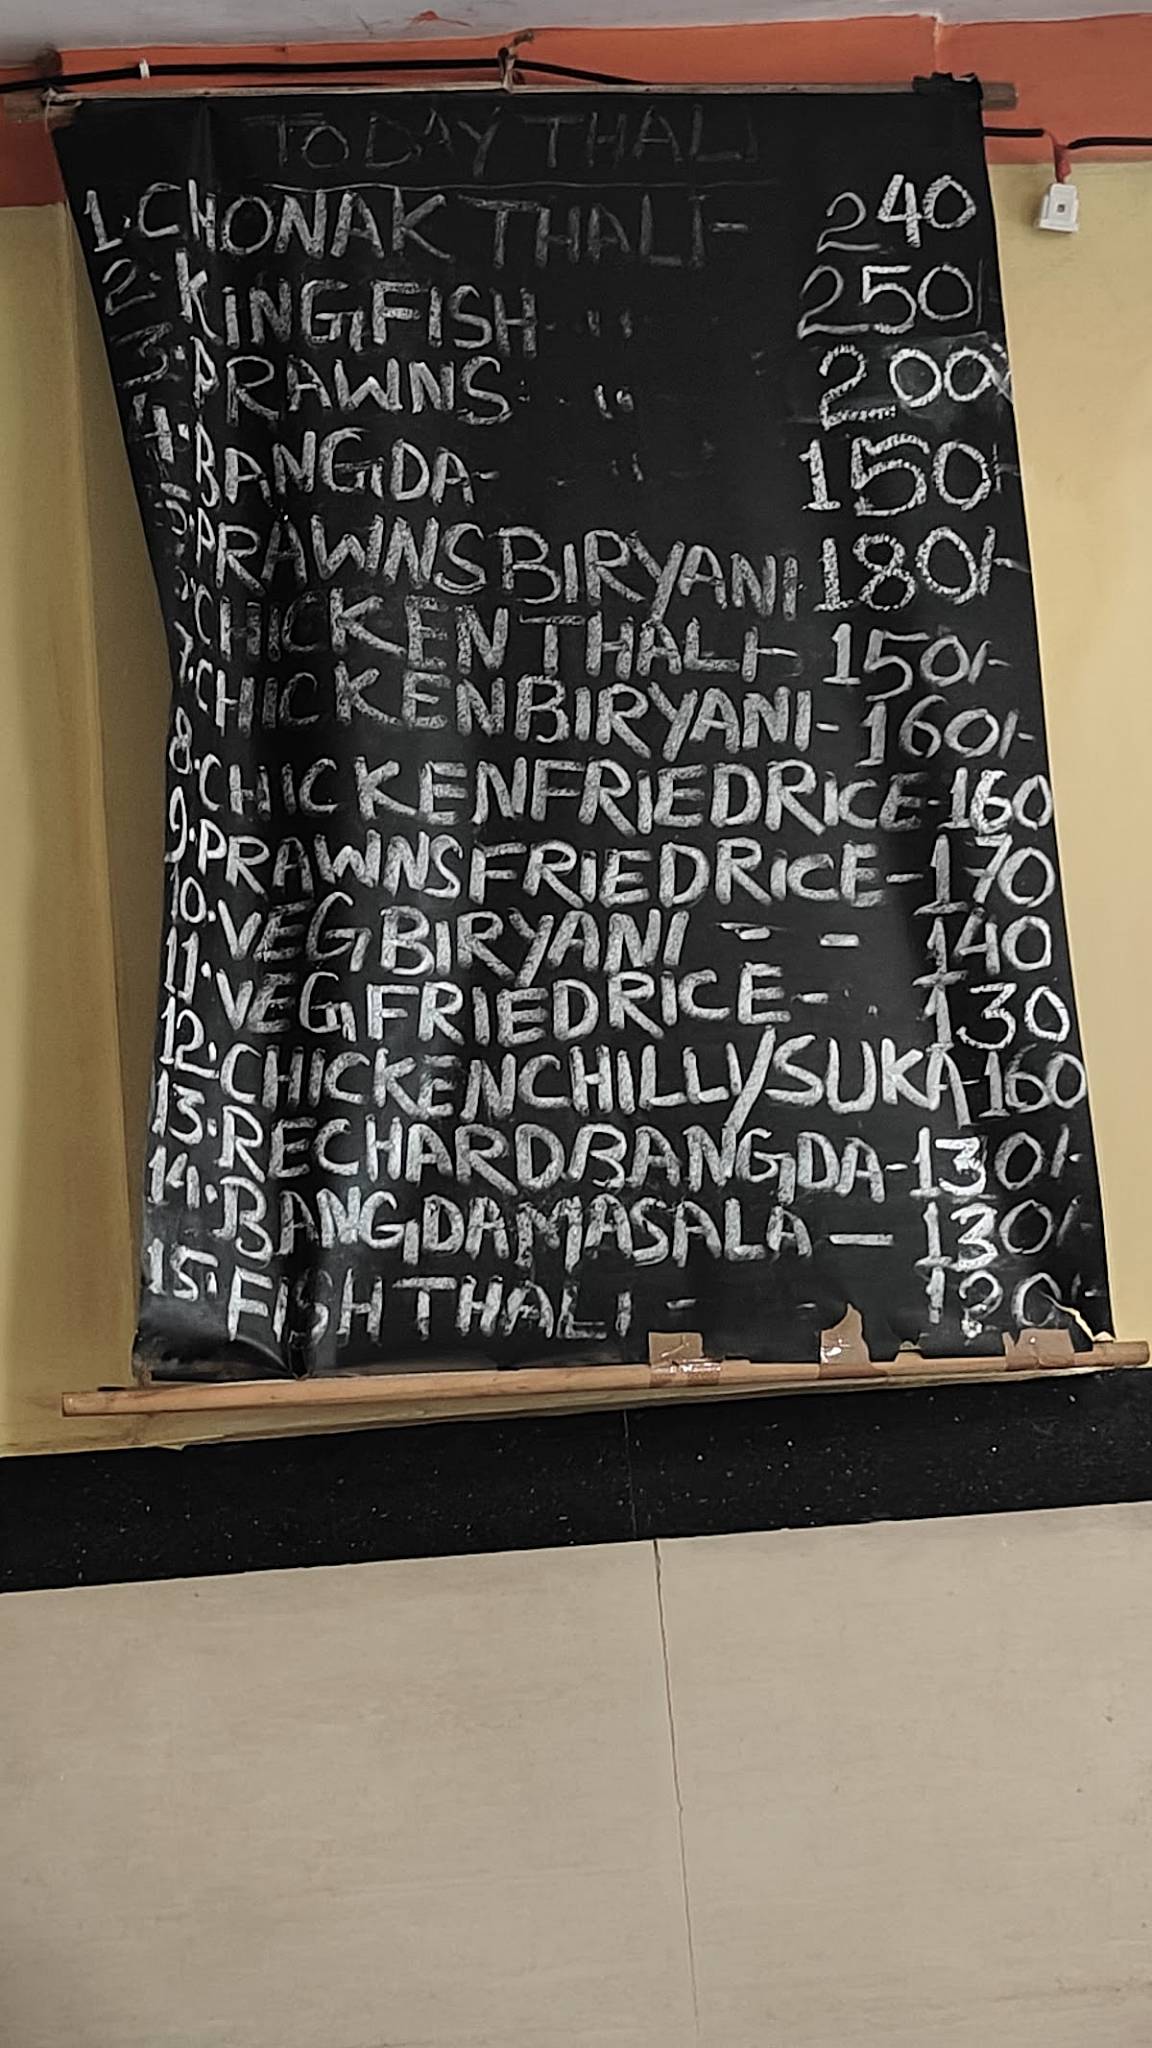 TODAY THALI
1. CHONAK THALI- 240
2. KINGFISH - " 250/-
3. PRAWNS - " 200/-
4. BANGDA- " 150/-
5. PRAWNS BIRYANI 180/-
6. CHICKEN THALI- 150/-
7. CHICKEN BIRYANI- 160/-
8. CHICKEN FRIED RICE- 160
9. PRAWNS FRIED RICE- 170
10. VEG BIRYANI - - 140
11. VEG FRIED RICE- - 130
12. CHICKEN CHILLY/SUKA-160
13. RECHARD BANGDA-130/-
14. BANGDA MASALA - 130/-
15. FISH THALI - - 120/-